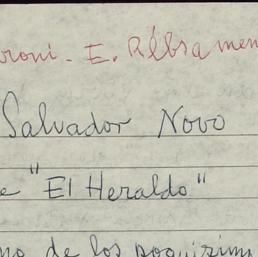 roni - E. Rébsamen
Salvador Novo
e "El Heraldo"
no de los poquísim